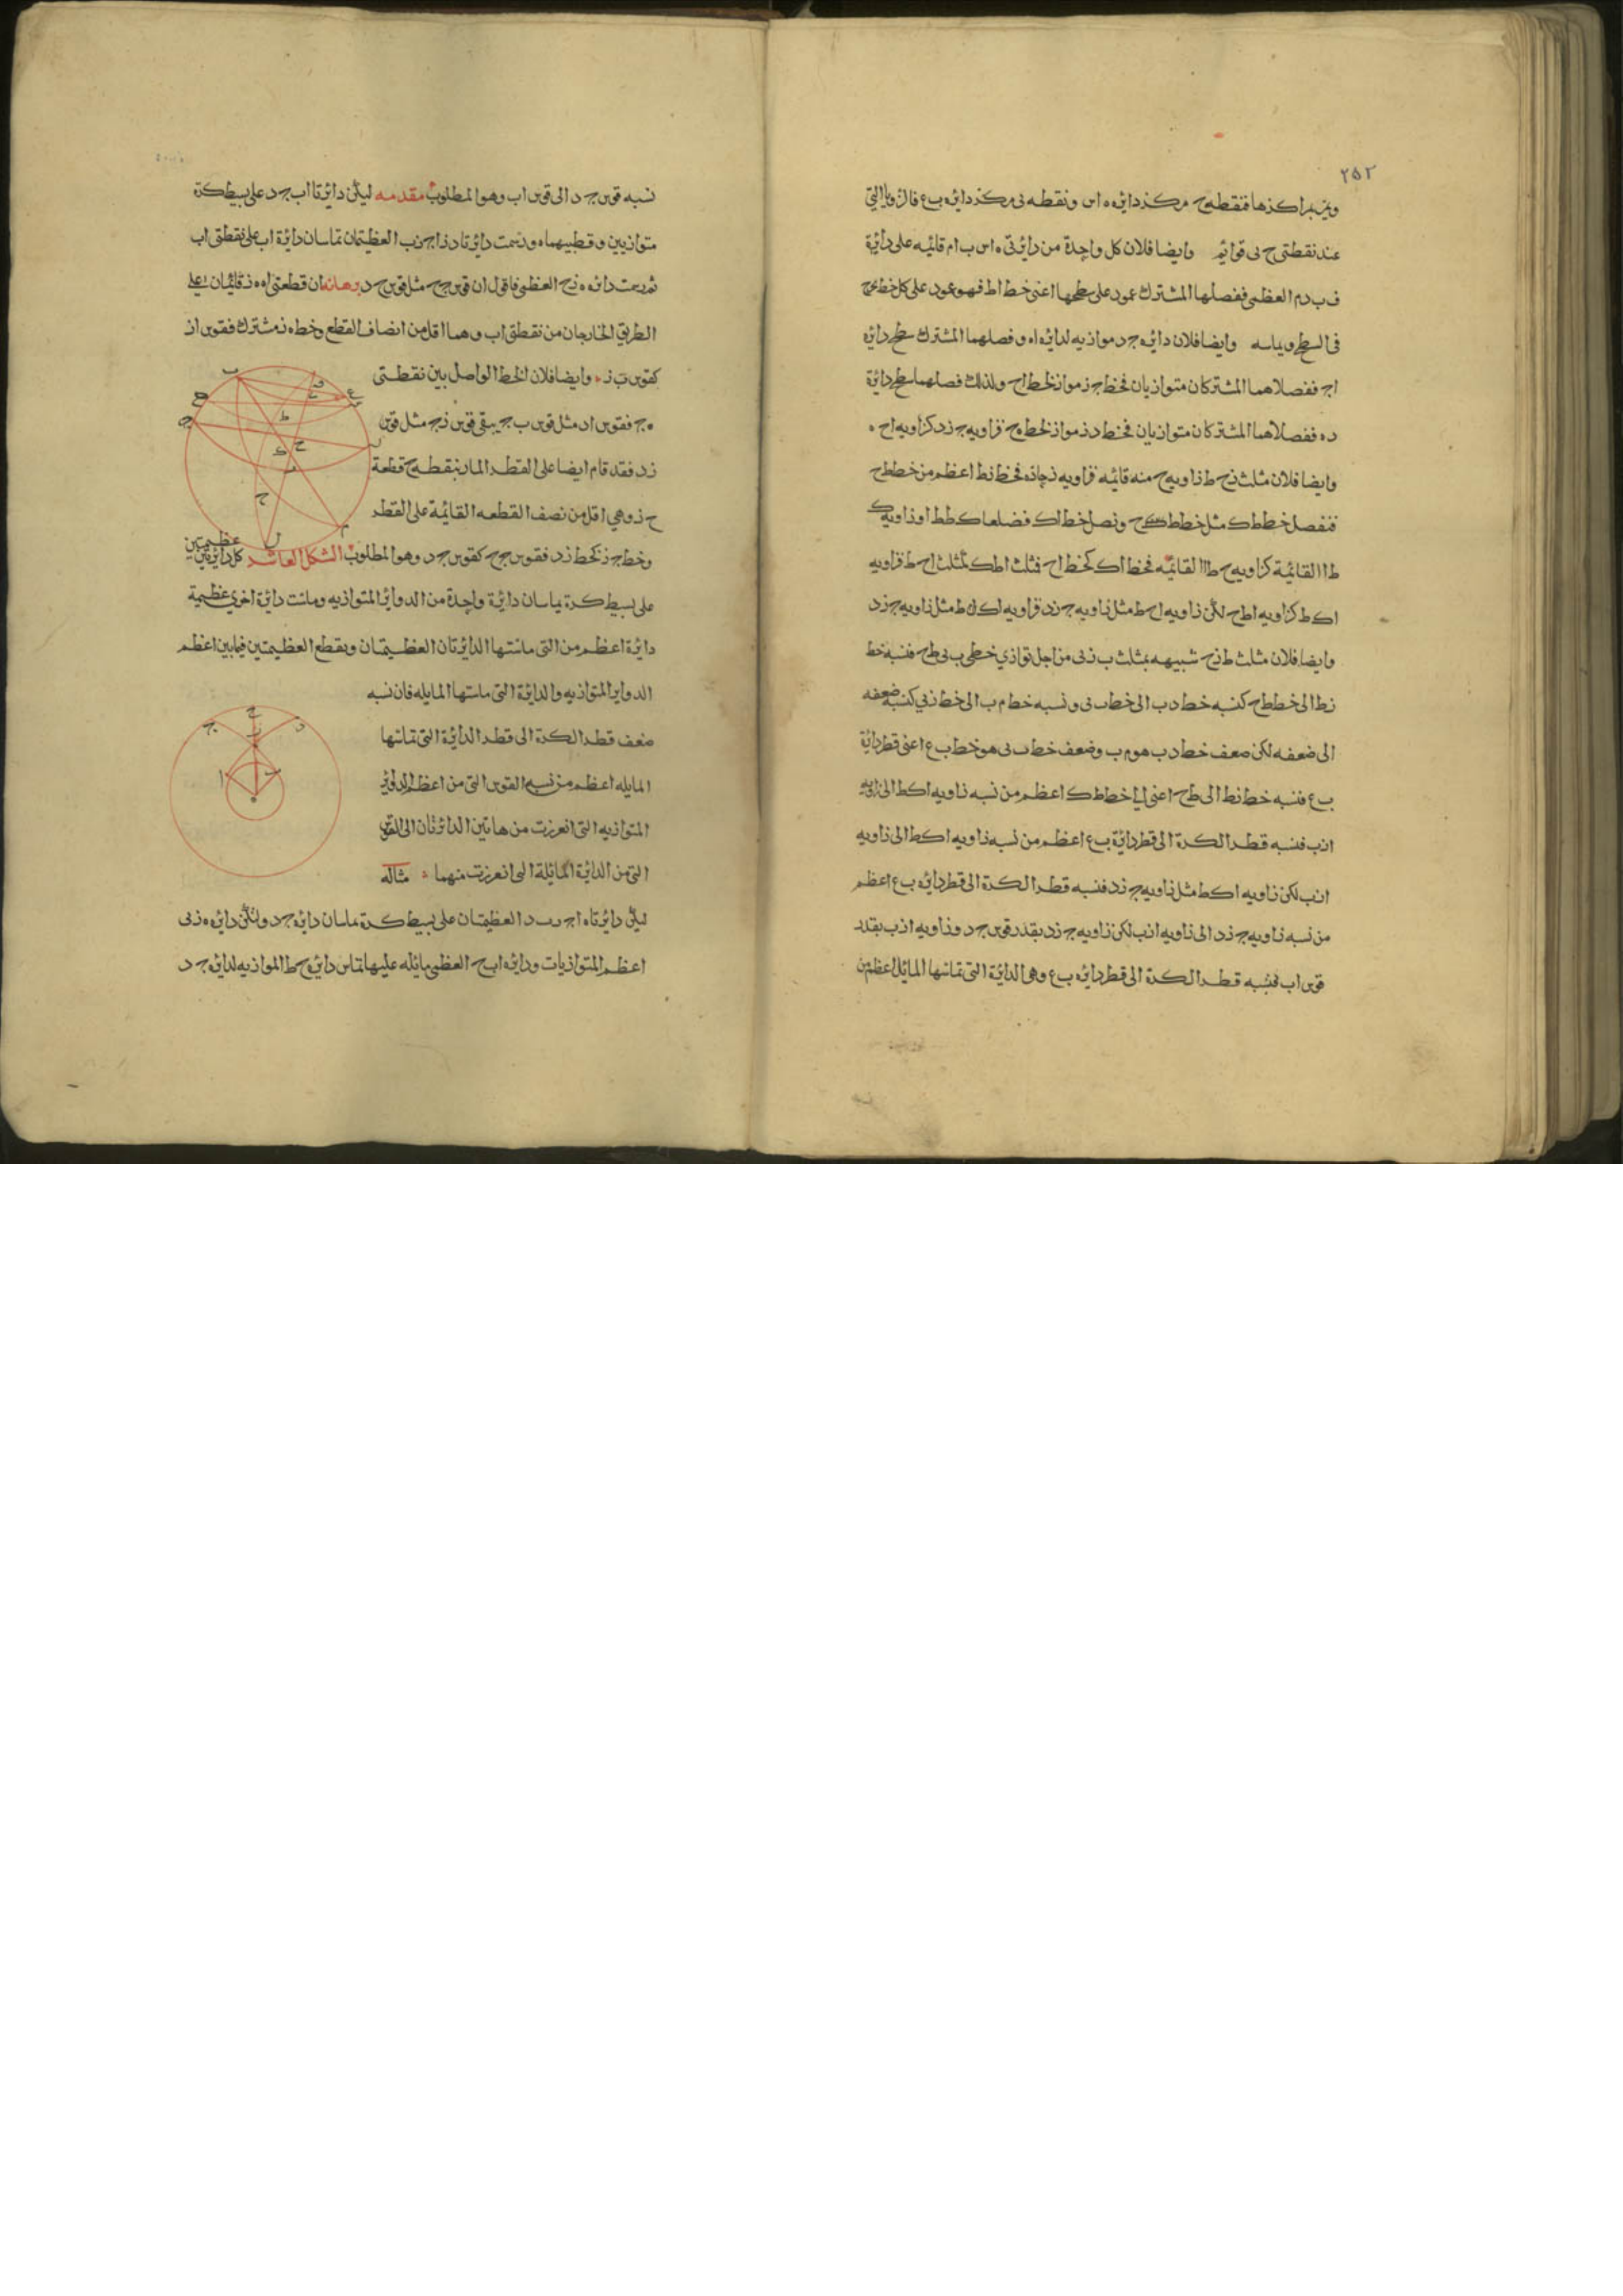 ٢٥٢
وبمر بمراكزها فنقطه ح مركز دائره ه اس ونقطه ى مركز دائره ب ع فالزوايا التي
عند نقطتى ح ى قوائم وايضا فلان كل واحدة من دائرتى ه اس ب ام قائمه على دائرة
ف ب د م العظمى ففصلها المشترك عمود على سطحها اعنى خط اط فهو عمود على كل خط يخرج
فى السطح ويماسه وايضا فلان دائره ج د موازيه لدائره اه وفصلهما المشترك سطح دائره
اج ففصلاهما المشتركان متوازيان فخط ج ز مواز لخط اح ولذلك فصلهما سطح دائرة
د ه ففصلاهما المشتركان متوازيان فخط د ز مواز لخط ه ح فزاويه ج ز د كزاويه اح ه
وايضا فلان مثلث زح ط زاويه ح منه قائمه فزاويه ز حاده فخط زط اعظم من خط طح
فنفصل خط طك مثل خط طح ونصل خط اك فضلعا ك ط ط ا وزاويه ك
ط ا القائمة كزاويه ح ط ا القائمه فخط اك كخط اح فمثلث اطك كمثلث اح ط فزاويه
اك ط كزاويه اطح لكن زاويه اح ط مثل زاويه ج زد فزاويه اك ط مثل زاويه ج زد
وايضا فلان مثلث ط زح شبيهه بمثلث ب زى من اجل توازي خطى ب ى طح فنسبه خط
زط الى خط طح كنسبه خط د ب الى خط ب ى ونسبه خط م ب الى خط زى كنسبه ضعفه
الى ضعفه لكن ضعف خط د ب هو م ب وضعف خط ب ى هو خط ب ع اعنى قطر دائرة
ب ع فنسبه خط زط الى طح اعنى الى خط طك اعظم من نسبه زاويه اكط الى زاويه
ازب فنسبه قطر الكرة الى قطر دائرة ب ع اعظم من نسبه زاويه اكط الى زاويه
ازب لكن زاويه اكط مثل زاويه ج زد فنسبه قطر الكرة الى قطر دائره ب ع اعظم
من نسبه زاويه ج زد الى زاويه ازب لكن زاويه ج زد بقدر قوس ج د وزاويه ازب بقدر
قوس اب فنسبه قطر الكرة الى قطر دائره ب ع وهى الدائرة التى تماسها المائله اعظم من
نسبه قوس ج د الى قوس اب وهو المطلوب مقدمه ليكن دائرتا اب ج د على بسيط كرة
متوازيين وقطبيهما ه ورسمت دائرتا د زا ج زب العظيمتان تماسان دائرة اب على نقطتى اب
ثم رسمت دائره ه زح العظمى فاقول ان قوس ج ح مثل قوس ح د برهانه ان قطعتى اه ه ز قائمتان على
الطريق الخارجان من نقطتى اب وهما اقل من انصاف القطع وخط ه ز مشترك فقوس از
كقوس ب ز وايضا فلان الخط الواصل بين نقطتى
ه ج فقوس اد مثل قوس ب ج يبقى قوس زج مثل قوس
زد فقد قام ايضا على القطر المار بنقطه ح قطعة
ح ز وهي اقل من نصف القطعه القائمة على القطر
وخط ج ز كخط زد فقوس ج ح كقوس ح د وهو المطلوب الشكل العاشر كل دائرتين عظيمتين
على بسيط كرة يماسان دائرة واحدة من الدوائر المتوازيه وماست دائرة اخرى عظيمة
دائرة اعظم من التى ماستها الدائرتان العظيمتان ويقطع العظيمتين فيما بين اعظم
الدواير المتوازيه والدائرة التى ماستها المايله فان نسبه
ضعف قطر الكرة الى قطر الدائرة التى تماسها
المايله اعظم من نسبه القوس التى من اعظم الدوائر
المتوازيه التى انفرزت من هاتين الدائرتان الى القوس
التى من الدائرة المائلة التى انفرزت منهما مثاله
ليكن دائرتا ه اج ب د العظيمتان على بسيط كرة يماسان دائرة ج د ولتكن دائره ه زى
اعظم المتوازيات ودائره اب ح العظمى مائله عليها تماس دائره ح ط الموازيه لدائره ج د